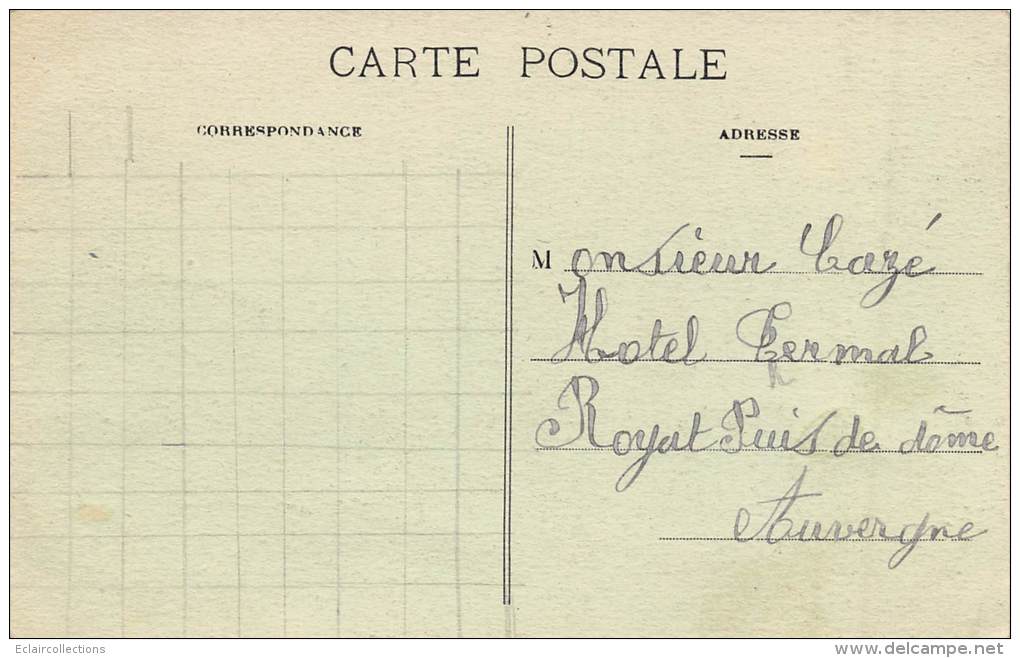 CARTE POSTALE
CORRESPONDANCE
ADRESSE
Monsieur Cazé
Hotel Termal
h
Royat Puis de dôme
Auvergne
Eclaircollections
www.delcampe.net